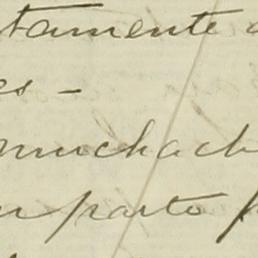 tamente
es -
muchach
parto